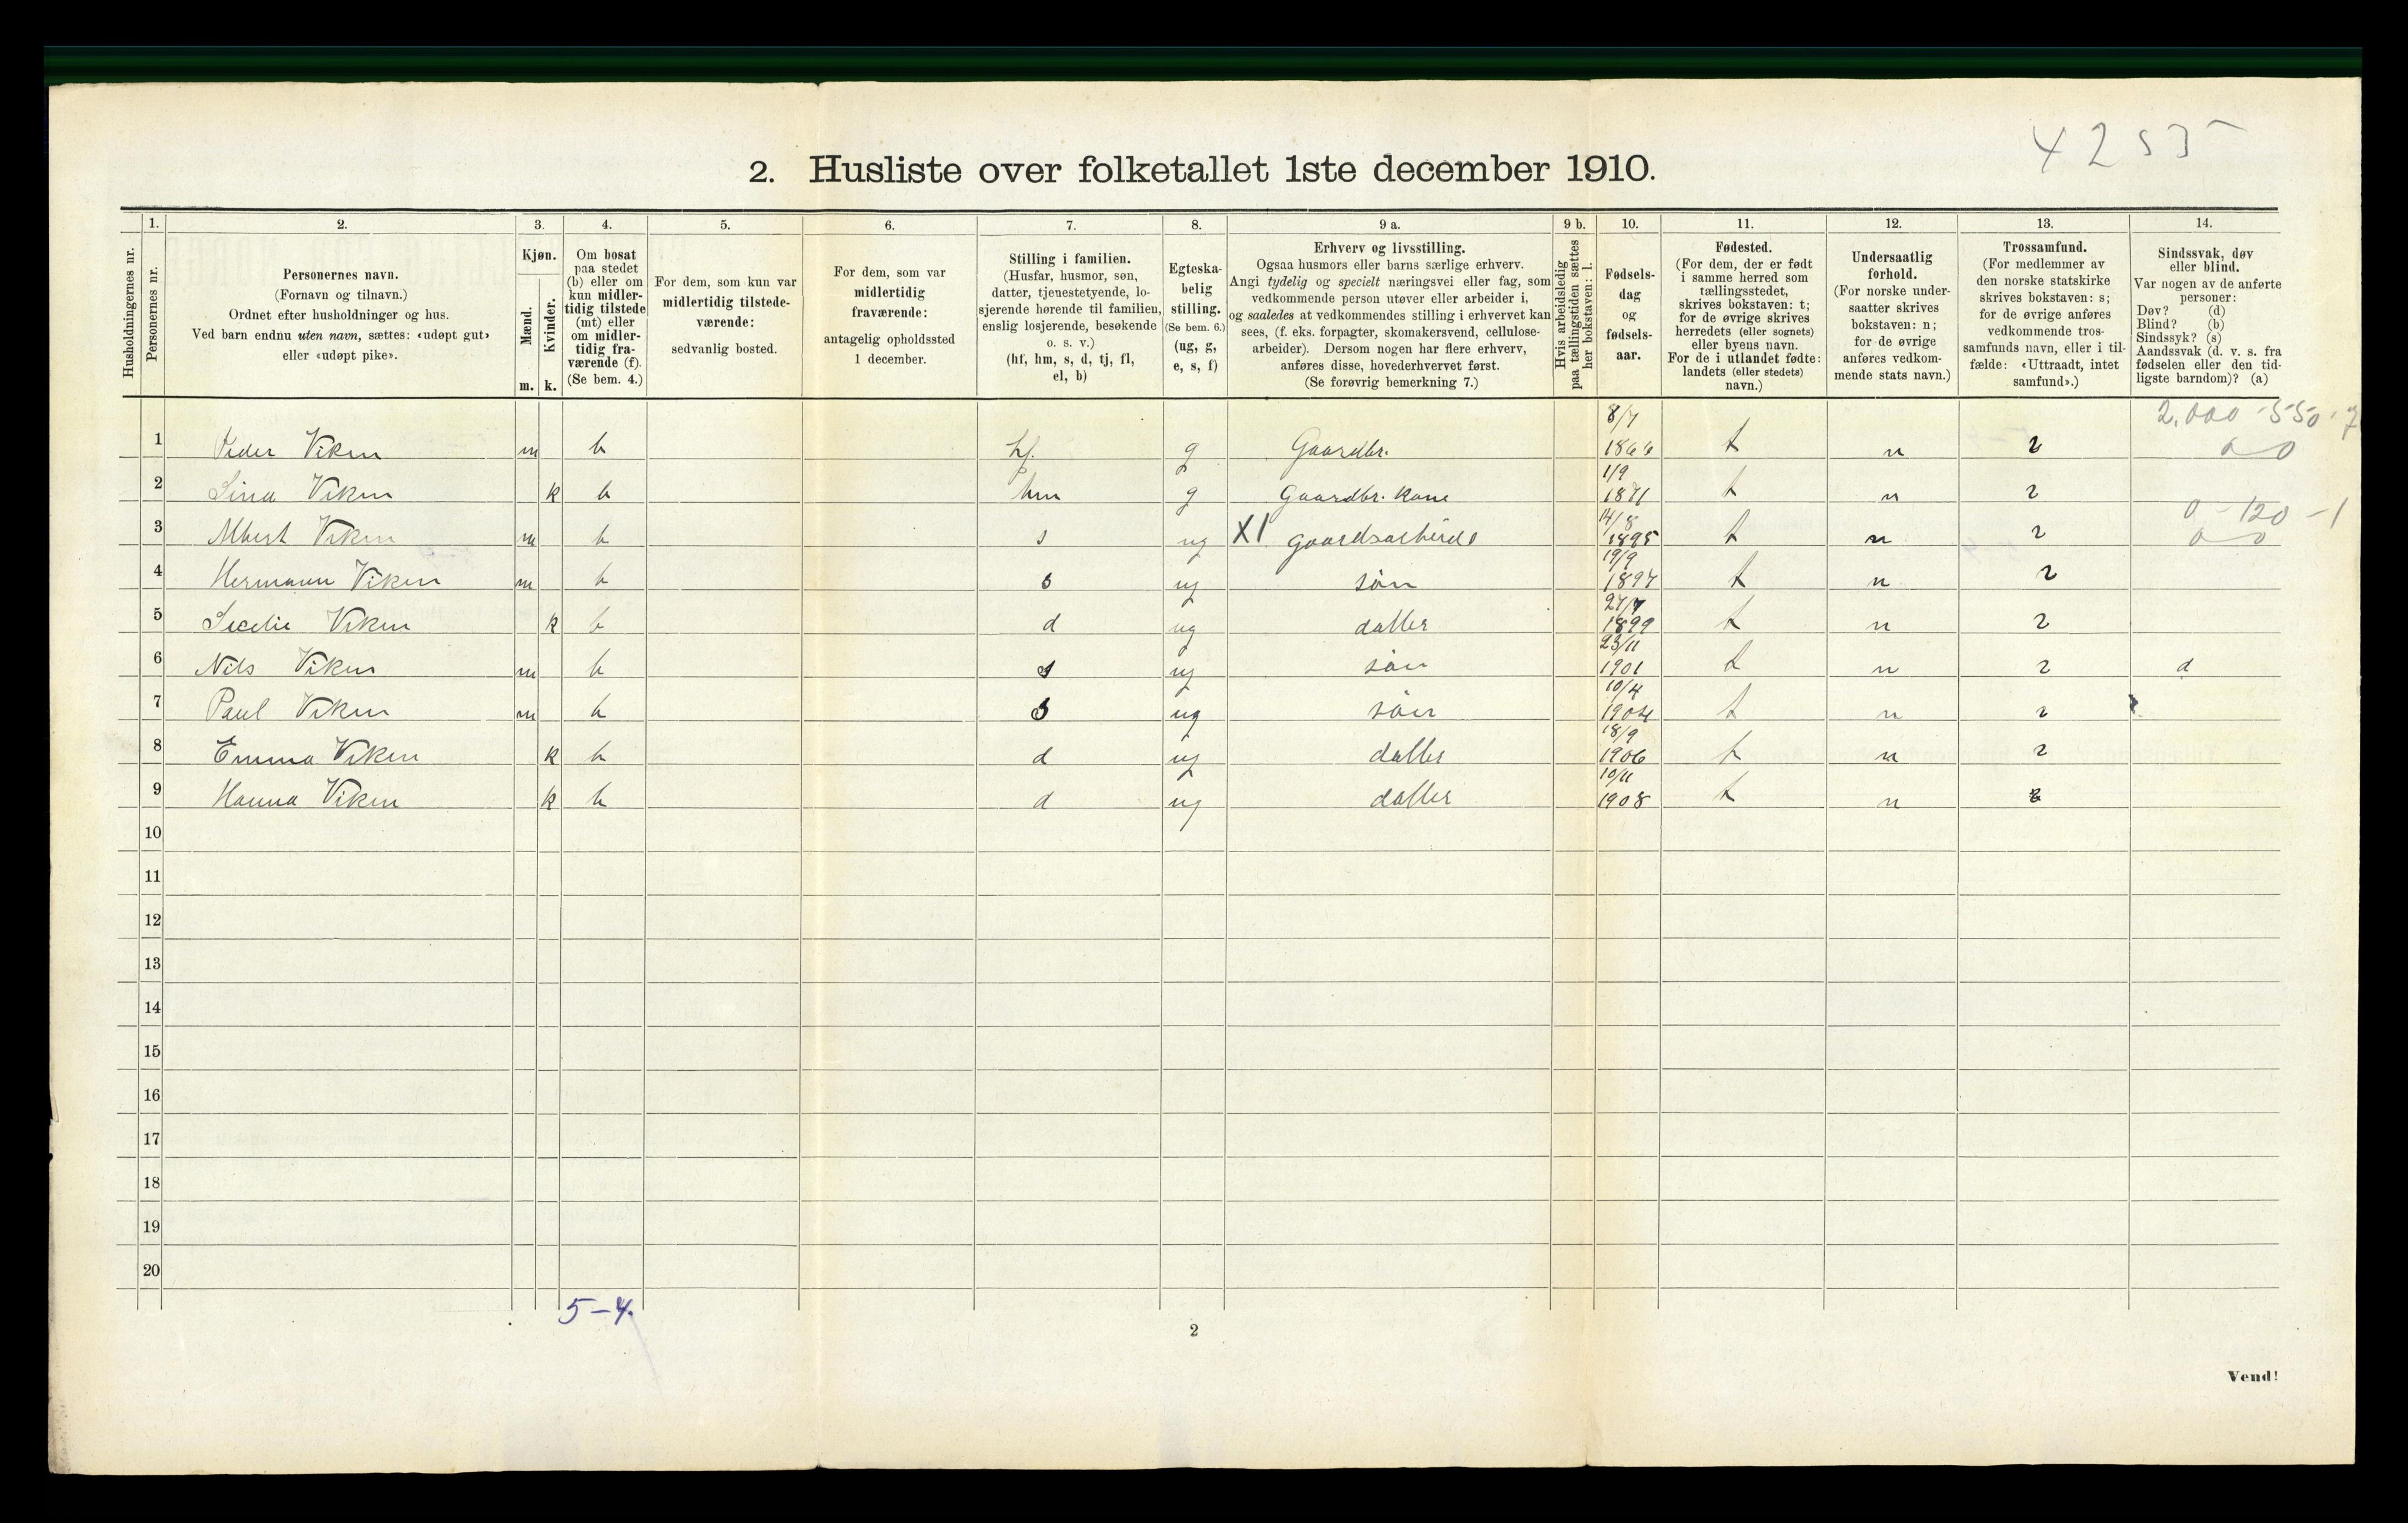 4255
2. Husliste over folketallet 1ste december 1910.
Husholdningernes nr.
1.
Personernes nr.
2.
Personernes navn.
(Fornavn og tilnavn.)
Ordnet efter husholdninger og hus.
Ved barn endnu uten navn, sættes: «udøpt gut»
eller «udøpt pike».
3.
Kjøn.
Mænd.
m.
Kvinder.
k.
4.
Om bosat
paa stedet
(b) eller om
kun midler-
tidig tilstede
(mt) eller
om midler-
tidig fra-
værende (f).
(Se bem. 4.)
5.
For dem, som kun var
midlertidig tilstede-
værende:
sedvanlig bosted.
6.
For dem, som var
midlertidig
fraværende:
antagelig opholdssted
1 december.
7.
Stilling i familien.
(Husfar, husmor, søn,
datter, tjenestetyende, lo-
sjerende hørende til familien,
enslig losjerende, besøkende
o. s. v.)
(hf, hm, s, d, tj, fl,
el, b)
8.
Egteska-
belig
stilling.
(Se bem. 6.)
(ug, g,
e, s, f)
9 a.
Erhverv og livsstilling.
Ogsaa husmors eller barns særlige erhverv.
Angi tydelig og specielt næringsvei eller fag, som
vedkommende person utøver eller arbeider i,
og saaledes at vedkommendes stilling i erhvervet kan
sees, (f. eks. forpagter, skomakersvend, cellulose-
arbeider). Dersom nogen har flere erhverv,
anføres disse, hovederhvervet først.
(Se forøvrig bemerkning 7.)
9 b.
Hvis arbeidsledig
paa tællingstiden sættes
her bokstaven: l.
10.
Fødsels-
dag
og
fødsels-
aar.
11.
Fødested.
(For dem, der er født
i samme herred som
tællingsstedet,
skrives bokstaven: t;
for de øvrige skrives
herredets (eller sognets)
eller byens navn.
For de i utlandet fødte:
landets (eller stedets)
navn.)
12.
Undersaatlig
forhold.
(For norske under-
saatter skrives
bokstaven: n;
for de øvrige
anføres vedkom-
mende stats navn.)
13.
Trossamfund.
(For medlemmer av
den norske statskirke
skrives bokstaven: s;
for de øvrige anføres
vedkommende tros-
samfunds navn, eller i til-
fælde: «Uttraadt, intet
samfund».)
14.
Sindssvak, døv
eller blind.
Var nogen av de anførte
personer:
Døv? (d)
Blind? (b)
Sindssyk? (s)
Aandssvak (d. v. s. fra
fødselen eller den tid-
ligste barndom)? (a)
2,000 - 550 - 7
1 Peder Viken m b hf. g Gaardbr. 8/7 1866 t n s
2 Lina Viken k b hm g Gaardbr. Kone 1/9 1871 t n s
0 - 120 - 1
3 Albert Viken m b s ug X1 gaardsarbeide 14/8 1895 t n s
4 Hermann Viken m b s ug søn 19/9 1897 t n s
5 Secelie Viken k b d ug datter 27/7 1899 t n s
6 Nils Viken m b s ug søn 23/11 1901 t n s d
7 Paul Viken m b s ug søn 10/4 1904 t n s
8 Emma Viken k b d ug datter 18/9 1906 t n s
9 Hanna Viken k b d ug datter 10/11 1908 t n s
10
11
12
13
14
15
16
17
18
19
20
5-4.
2
Vend!